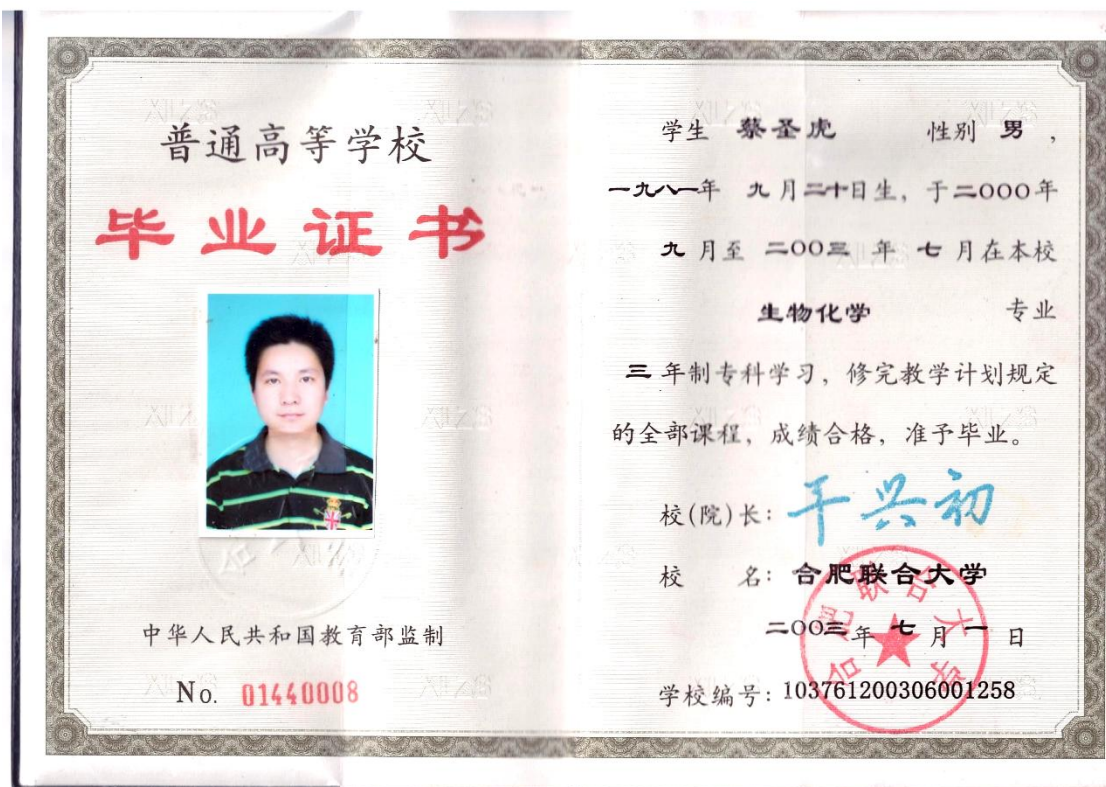 普通高等学校
毕业证书
中华人民共和国教育部监制
No. 01440008
学生 蔡圣虎 性别 男，
一九八一年 九月二十日生，于二000年
九 月至 二00三 年 七 月在本校
生物化学 专业
三 年制专科学习，修完教学计划规定
的全部课程，成绩合格，准予毕业。
校(院)长：干兴初
校 名：合肥联合大学
二00三年 七 月 一 日
学校编号：103761200306001258
合肥联合大学